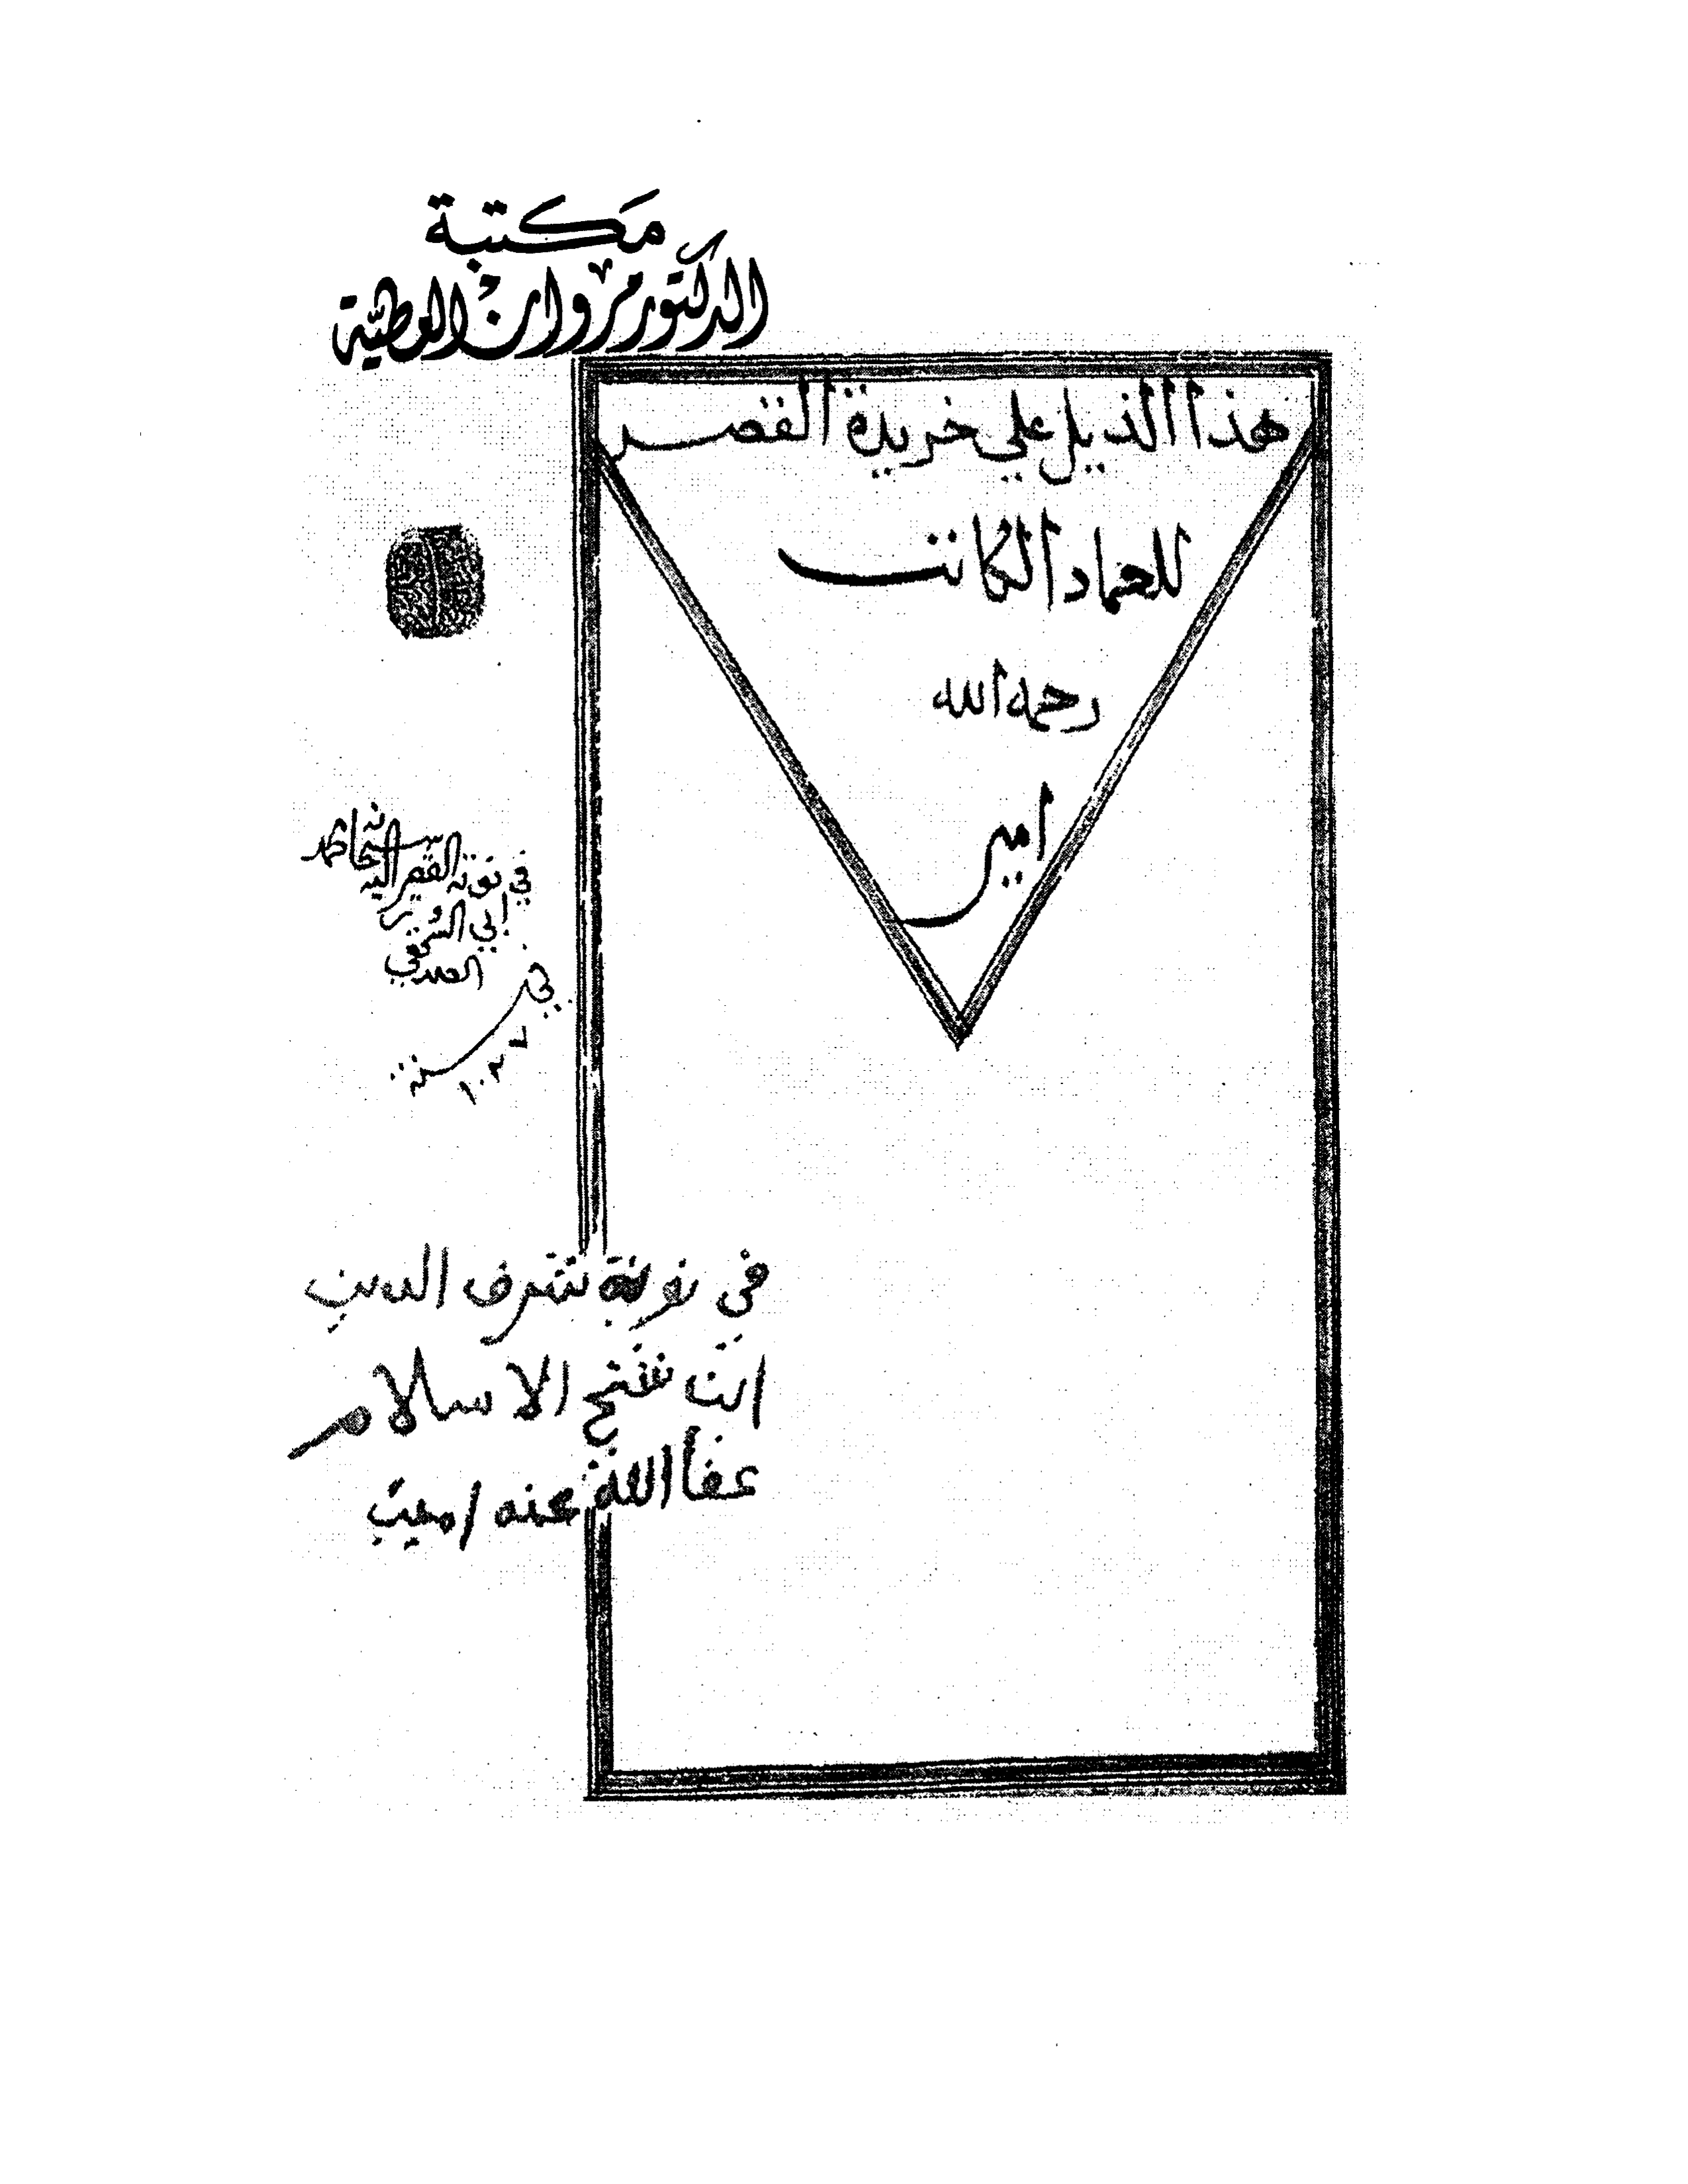 مكتبة
الدكتور مروان العطية
هذا الذيل علي خريدة القصر
للعماد الكاتب
رحمه الله
امين
في نوبة الفقير اليه سبحانه
ابي السرور
الصديقي
في
سنة ١٠٢٧
في نوبة شرف الدين
ابن شيخ الاسلام
عفا الله عنه امين